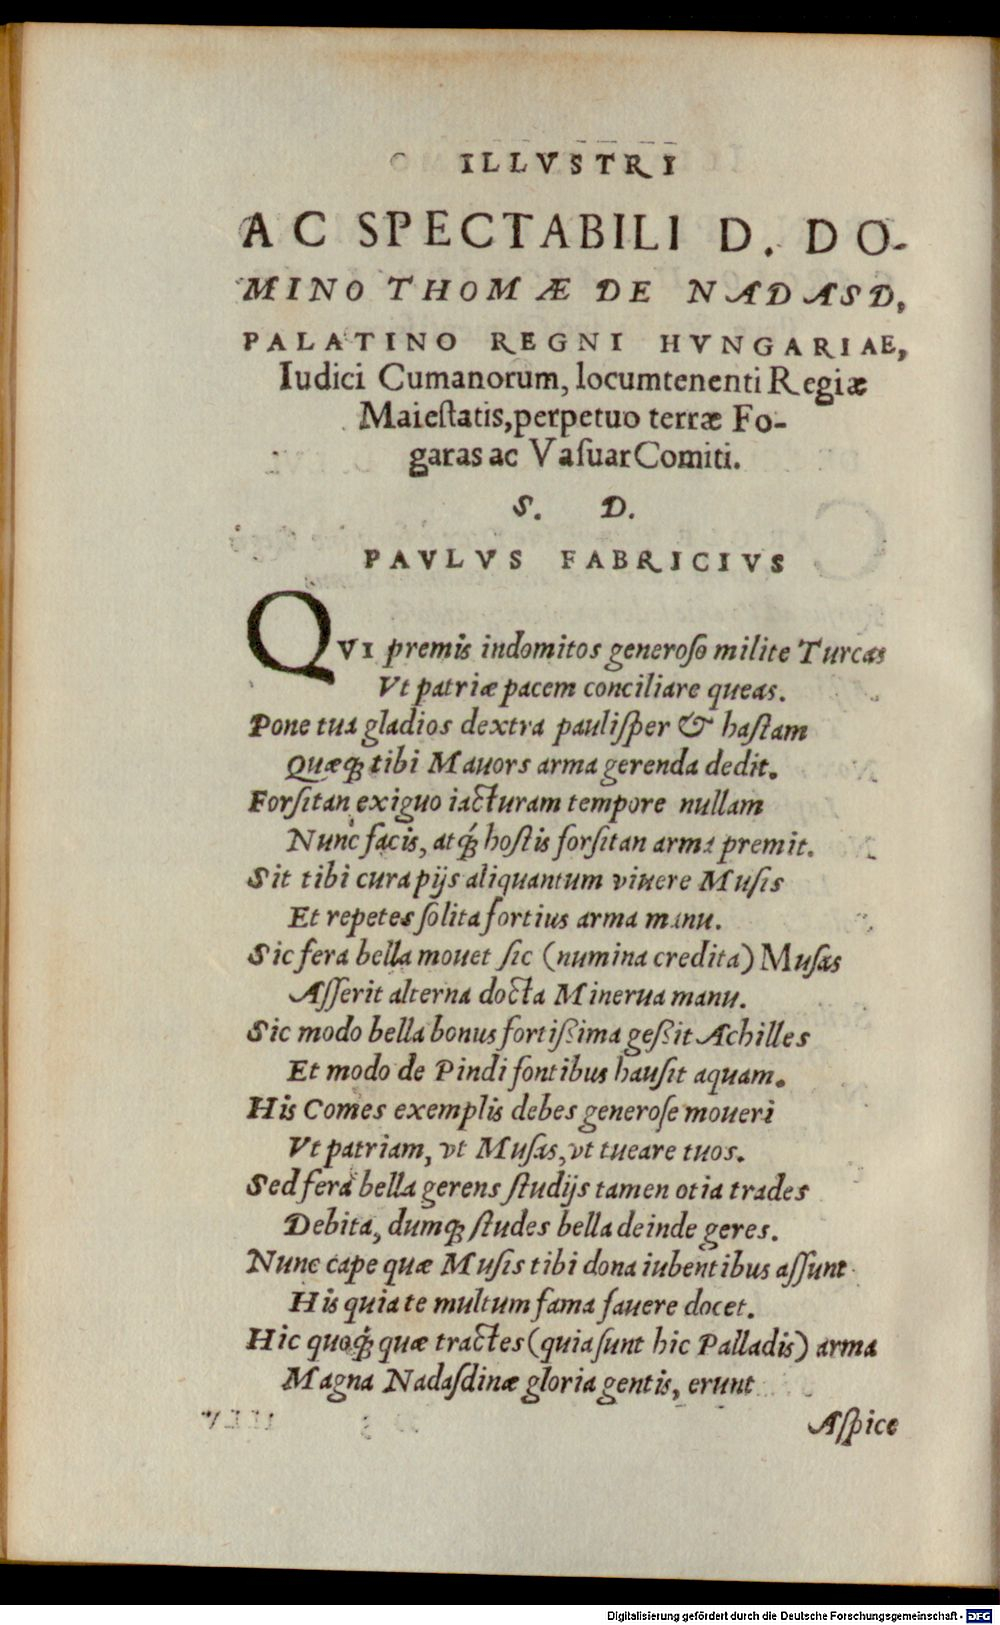 ILLVSTRI
AC SPECTABILI D. DO-
MINO THOMÆ DE NADASD,
PALATINO REGNI HVNGARIAE,
Iudici Cumanorum, locumtenenti Regiæ
Maieſtatis, perpetuo terræ Fo-
garas ac Vaſuar Comiti.
S. D.
PAVLVS FABRICIVS
QVI premis indomitos generoſo milite Turcas
Vt patriæ pacem conciliare queas.
Pone tua gladios dextra pauliſper & haſtam
Quæq́; tibi Mauors arma gerenda dedit.
Forſitan exiguo iacturam tempore nullam
Nunc facis, atq́; hoſtis forſitan arma premit.
Sit tibi cura pijs aliquantum viuere Muſis
Et repetes ſolita fortius arma manu.
Sic fera bella mouet ſic (numina credita) Muſas
Aſſerit alterna docta Minerua manu.
Sic modo bella bonus fortißima geßit Achilles
Et modo de Pindi fontibus hauſit aquam.
His Comes exemplis debes generoſe moueri
Vt patriam, vt Muſas, vt tueare tuos.
Sed fera bella gerens ſtudijs tamen otia trades
Debita, dumq; ſtudes bella deinde geres.
Nunc cape quæ Muſis tibi dona iubentibus aſſunt
His quia te multum fama fauere docet.
Hic quoq́; quæ tractes (quia ſunt hic Palladis) arma
Magna Nadaſdinæ gloria gentis, erunt
Aſpice
Digitalisierung gefördert durch die Deutsche Forschungsgemeinschaft - DFG